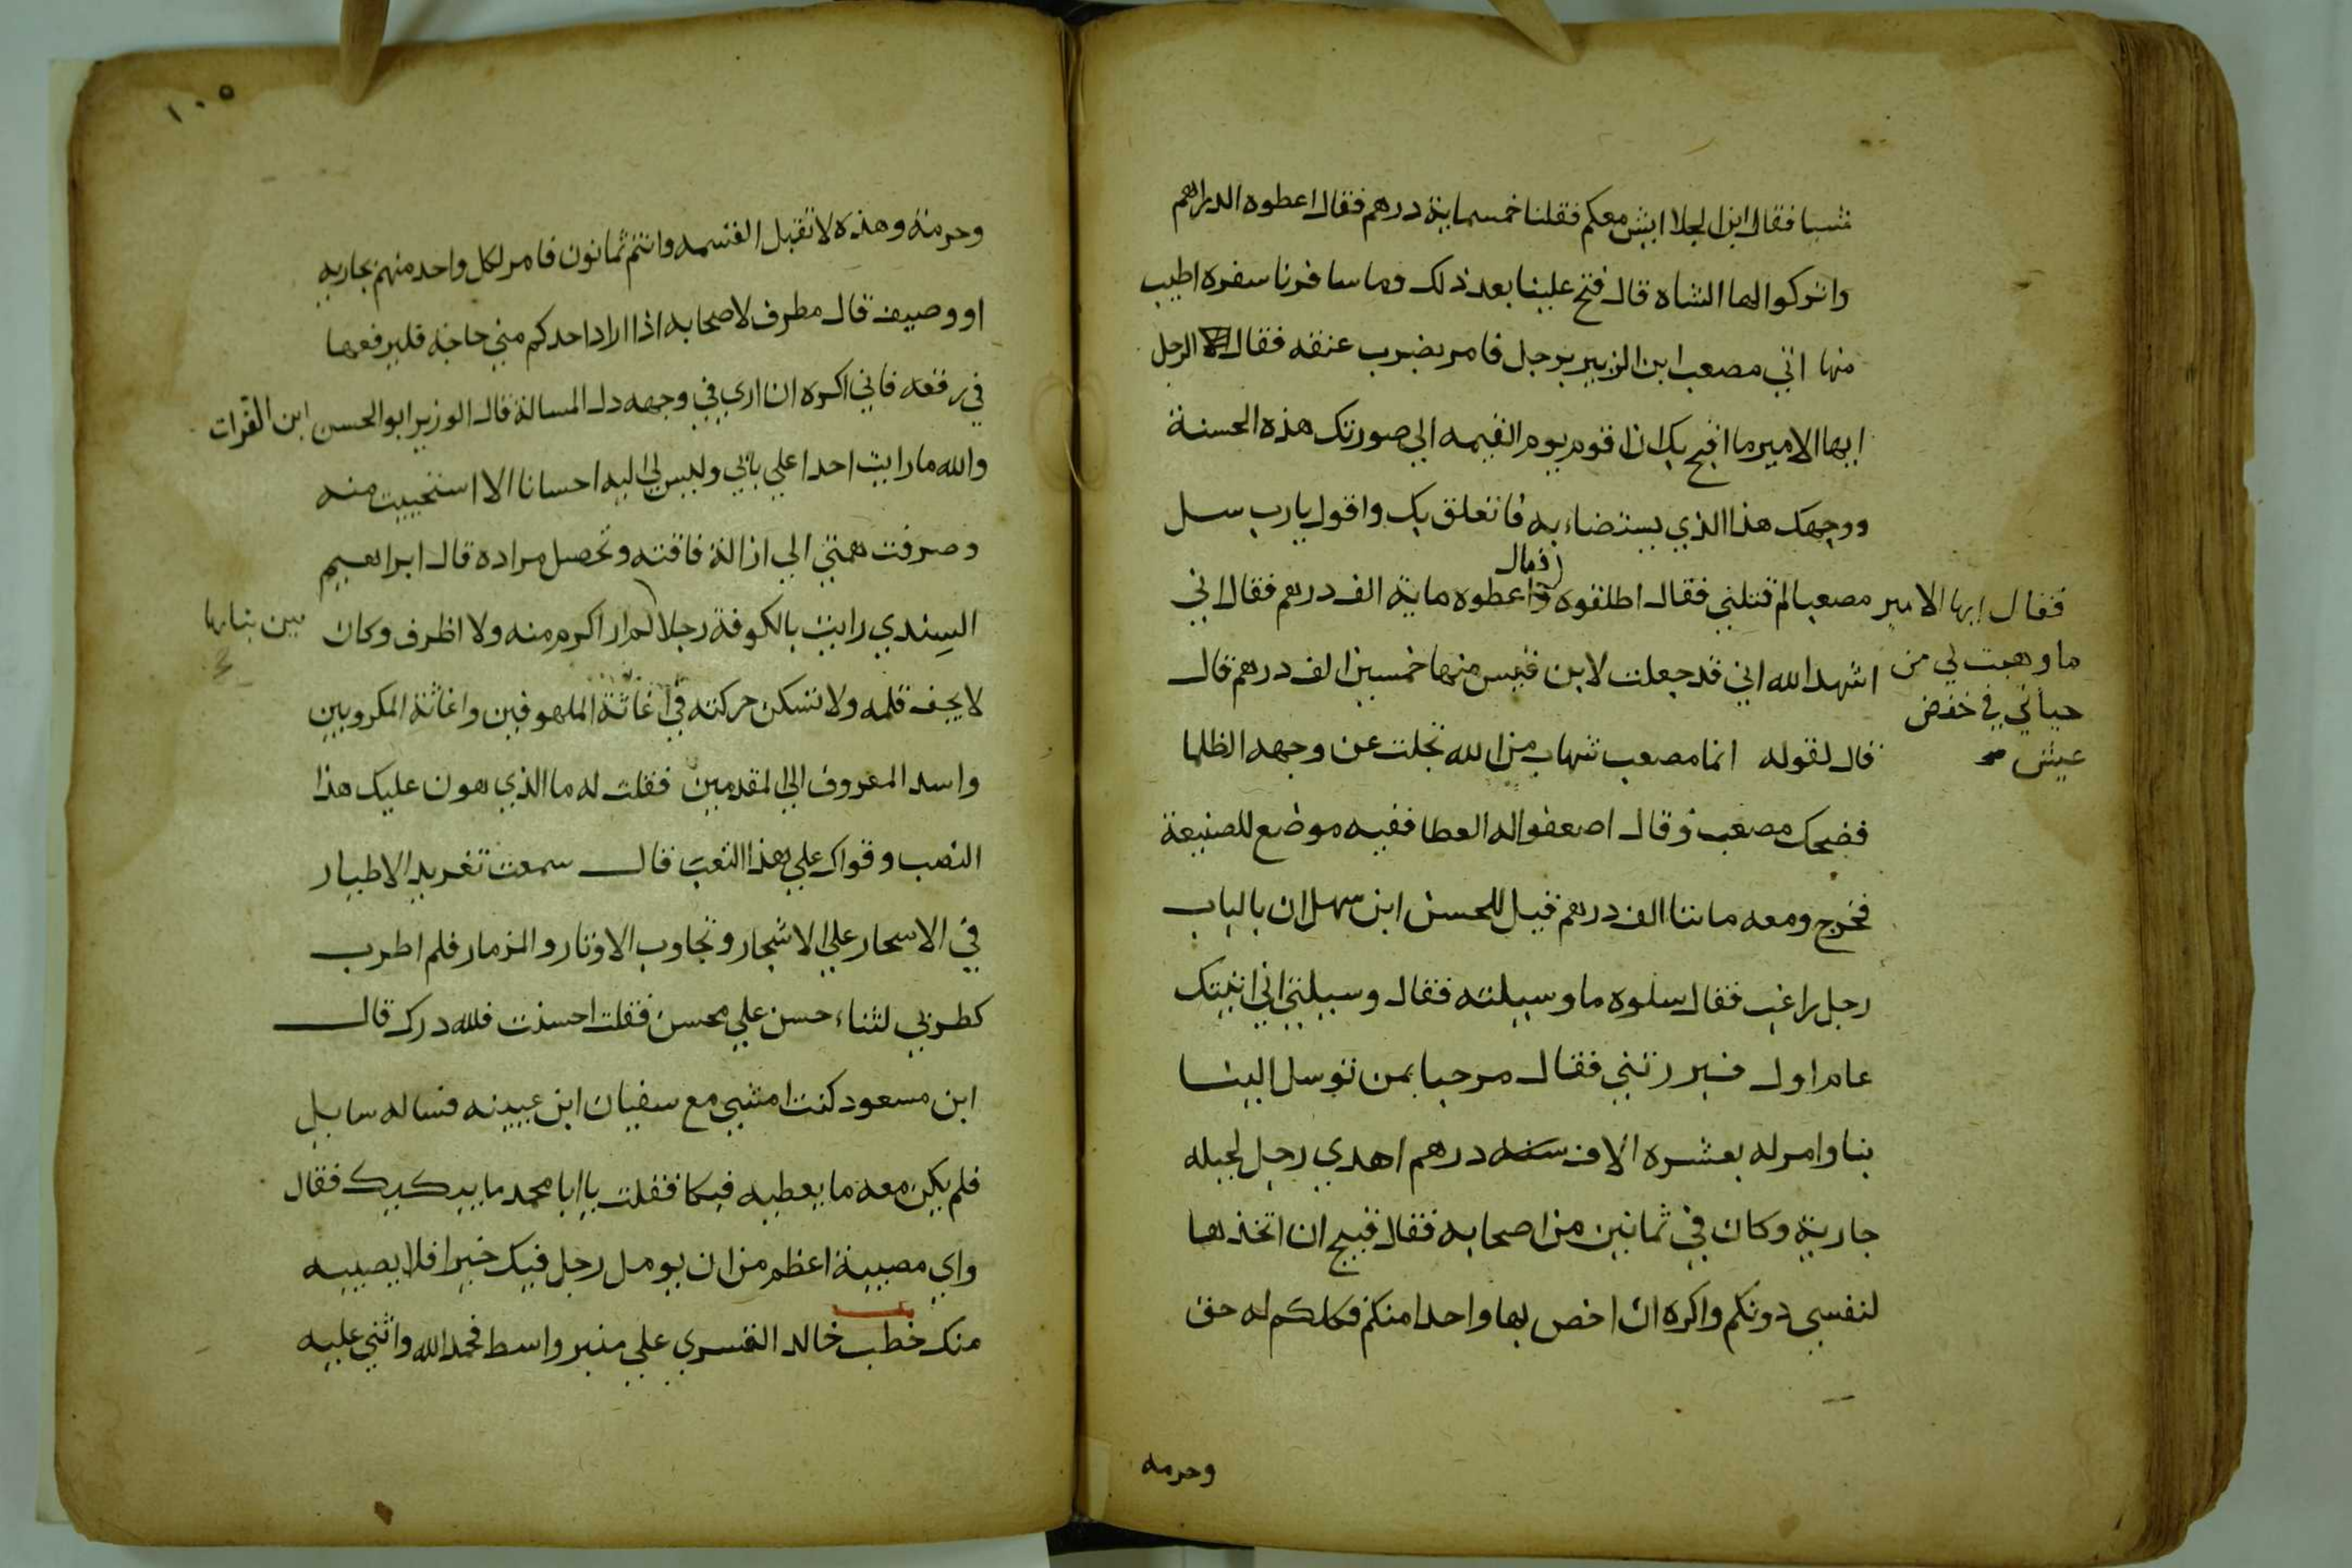 شيا فقال ابن الجلا ايش معكم فقلنا خمسماية درهم فقال اعطوه الدراهم
واتركوا لها الشاه قال ففتح علينا بعد ذلك وما سافرنا سفره اطيب
منها اتي مصعب ابن الزبير برجل فامر بضرب عنقه فقال الرجل
ايها الامير ما اقبح بك ان اقوم يوم القيمه الي صورتك هذه الحسنة
ووجهك هذا الذي يستضاء به فاتعلق بك واقول يا رب سل
فقال
مصعبا لم قتلني فقال اطلقوه واعطوه ماية الف درهم فقال اني
اشهد الله اني قد جعلت لابن قيس منها خمسين الف درهم قال
قال لقوله انما مصعب شهاب من الله تجلت عن وجهه الظلما
فضحك مصعب وقال اضعفوا له العطا ففيه موضع للصنيعة
فخرج ومعه مائتا الف درهم قيل للحسن ابن سهل ان بالباب
رجل راغب فقال سلوه ما وسيلته فقال وسيلتي اني اتيتك
عام اول فبررتني فقال مرحبا بمن توسل الينا
بنا وامر له بعشره الاف درهم اهدي رجل لجبله
جارية وكان في ثمانين من اصحابه فقال قبيح ان اتخذها
لنفسي دونكم واكره ان اخص بها واحدا منكم فكلكم له حق
وحرمه
فقال ايها الامير
ما وهبت لي من
حياتي في خفض
عيش
١٠٥
وحرمة وهذه لا تقبل القسمه وانتم ثمانون فامر لكل واحد منهم بجاريه
او وصيف قال مطرف لاصحابه اذا اراد احدكم مني حاجة فليرفعها
في رقعه فاني اكره ان اري في وجهه ذل المسالة قال الوزير ابو الحسن ابن الفرات
والله ما رايت احدا علي بابي وليس لي اليه احسانا الا استحييت منه
وصرفت همتي الي ازالة فاقته وتحصل مراده قال ابراهيم
السندي رايت بالكوفة رجلا لم ار اكرم منه ولا اظرف وكان
لا يجف قلمه ولا تسكن حركته في اغاثة الملهوفين واغاثة المكروبين
واسد المعروف الي المقدمين فقلت له ما الذي هون عليك هذا
النصب وقواك علي هذا التعب قال سمعت تغريد الاطيار
في الاسحار علي الاشجار وتجاوب الاوتار والمزمار فلم اطرب
كطربي لثناء حسن علي محسن فقلت احسنت فلله درك قال
ابن مسعود كنت امشي مع سفيان ابن عيينه فساله سايل
فلم يكن معه ما يعطيه فبكا فقلت يا ابا محمد ما يبكيك فقال
واي مصيبة اعظم من ان يومل رجل فيك خيرا فلا يصيبه
منك خطب خالد القسري علي منبر واسط فحمد الله واثني عليه